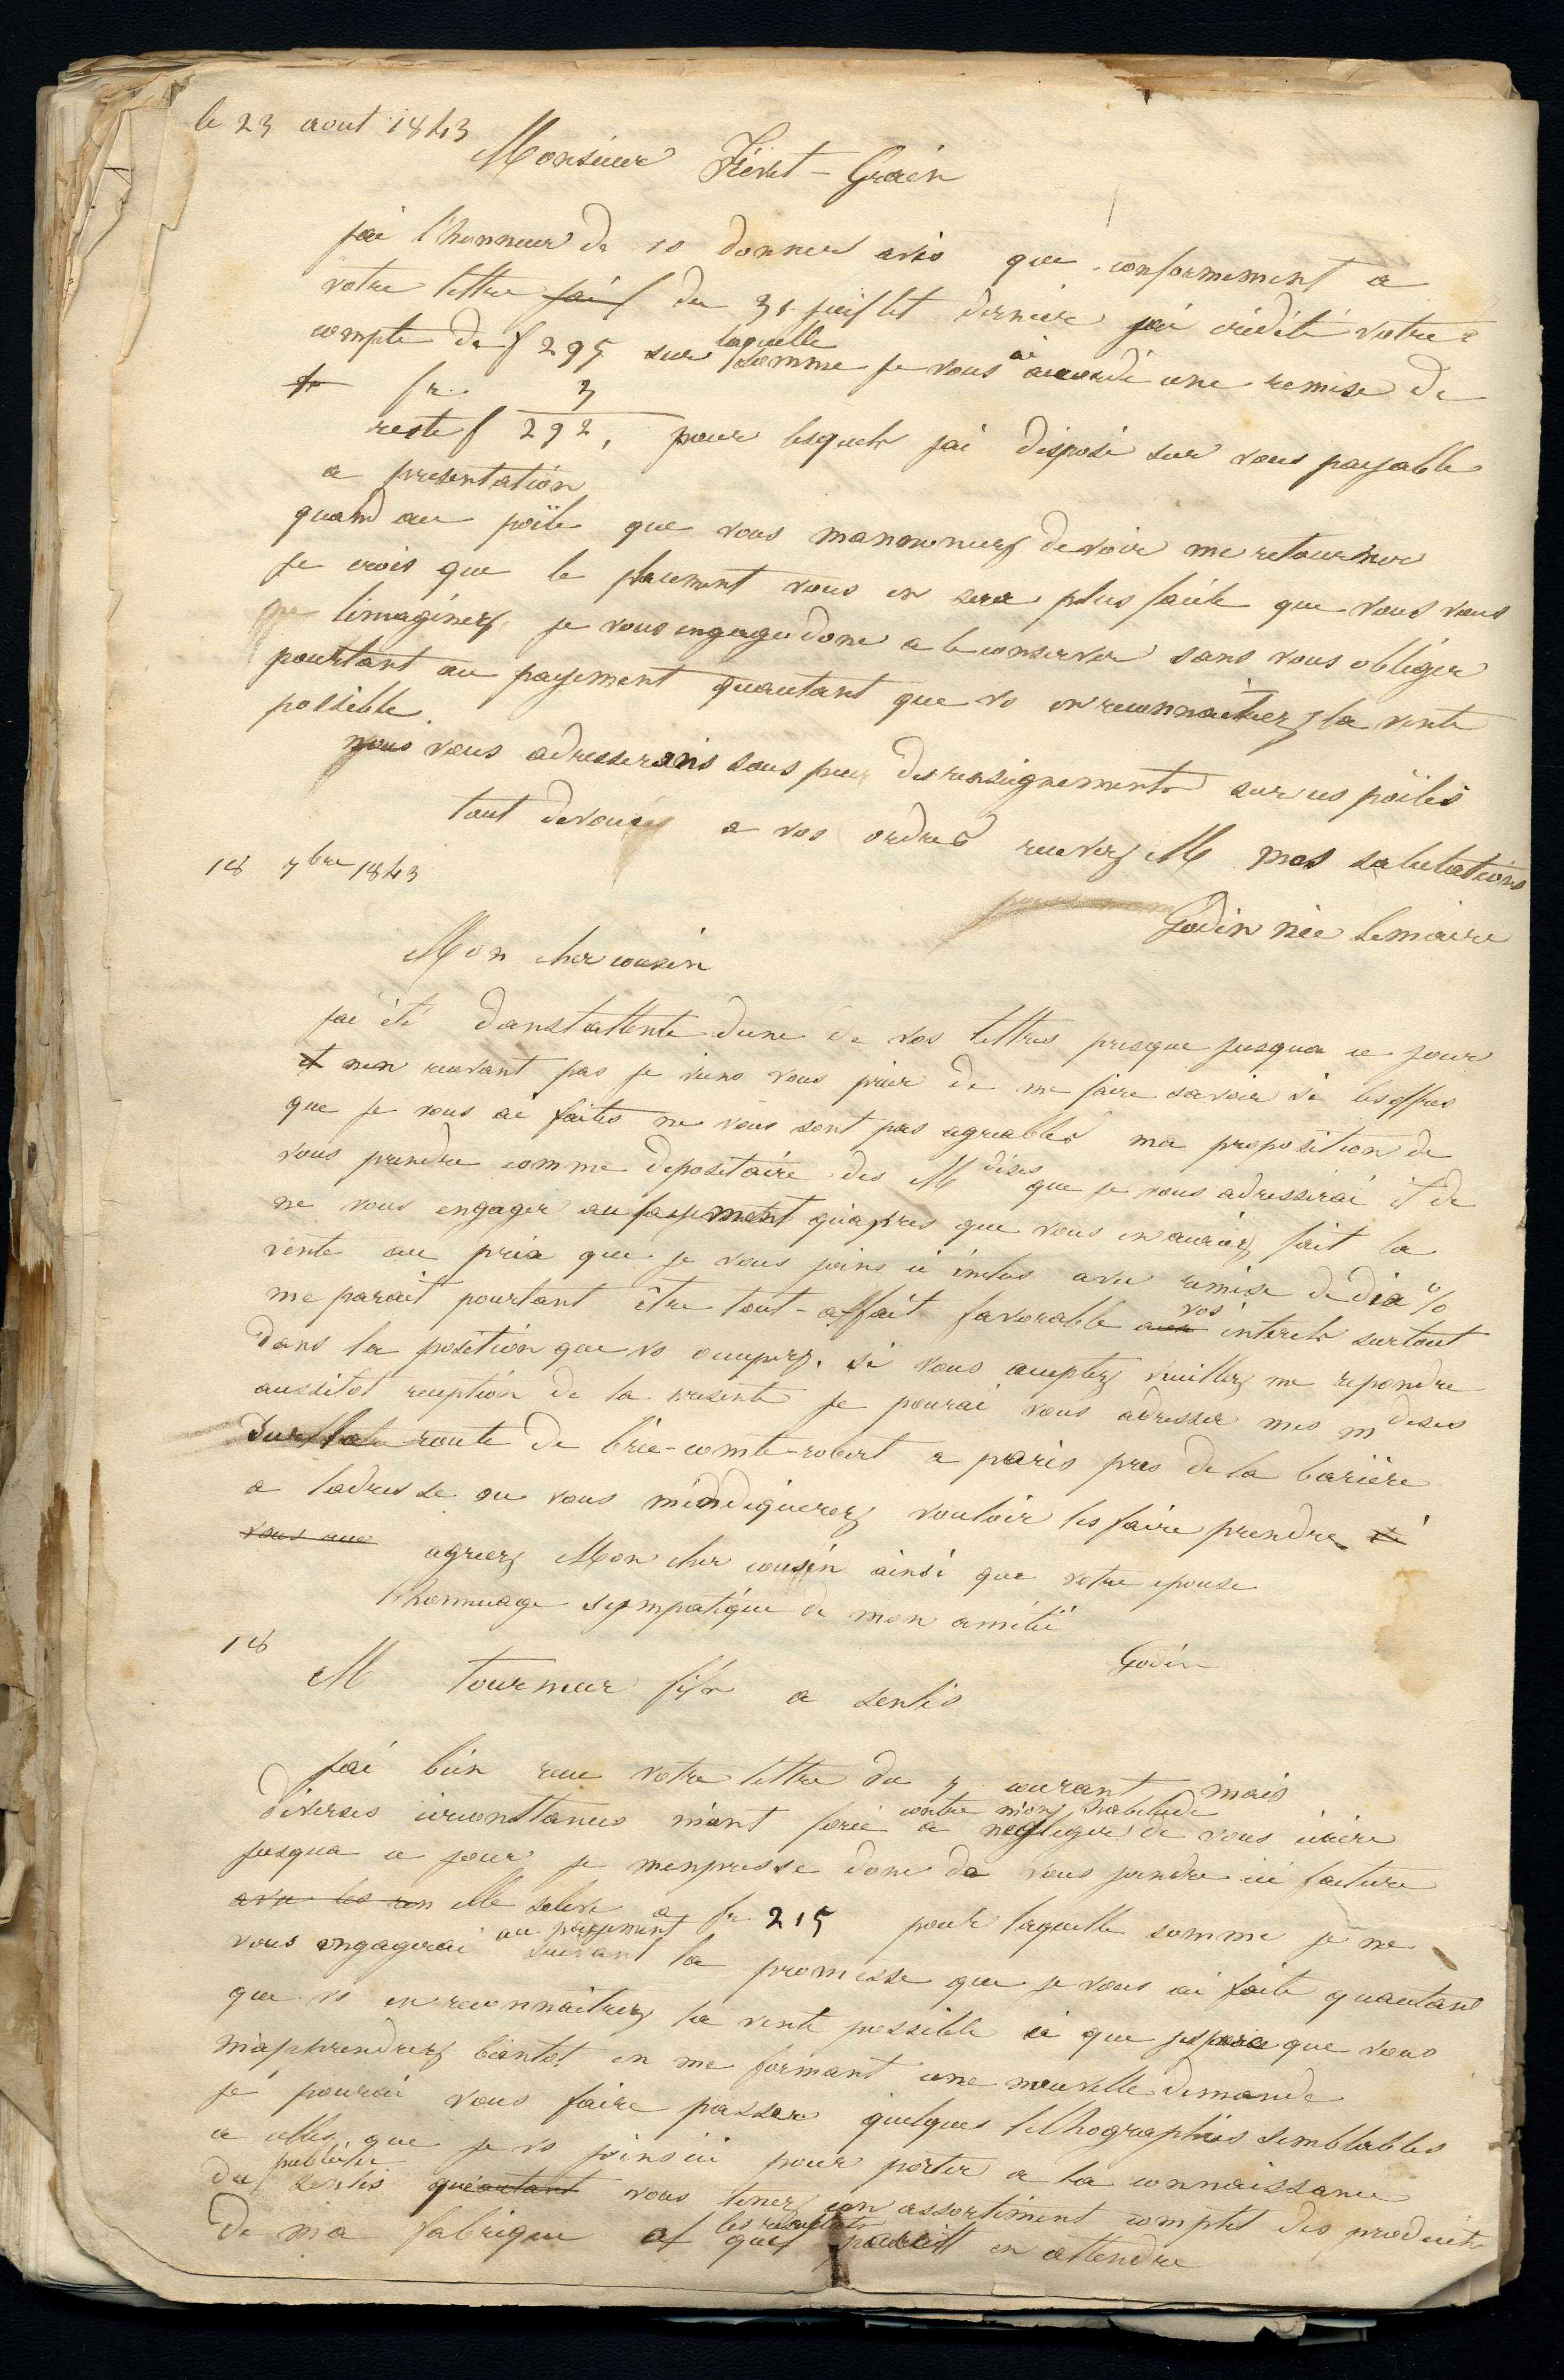 le 23 aout 1843
Monsieur Fiévet-Grain
jai l'honneur de vs donner avis que conformement a
votre lettre jai du 31 juillet dernier jai crédité votre
compte de f 295 sur laquelle somme je vous ai accordé une remise de
fr 3
reste f 292, pour lesquels jai disposé sur vous payable
a presentation
quand au poële que vous mannoncez devoir me retourner
je crois que le placement vous en sera plus facile que vous vous
limaginez je vous engage donc a le conserver sans vous obliger
pourtant au payement quautant que vs en reconnaitrez la vente
possible.
nous vous adresserons sous peu des renseignements sur ces poëles
tout devoués a vos ordres recevez M mes salutations
Godin née lemaire
18 7bre 1843
Mon cher cousin
jai été dans lattente dune de vos lettres presque jusqua ce jour
et nen recevant pas je viens vous prier de me faire savoir si les offres
que je vous ai faites ne vous sont pas agreables ma proposition de
vous prendre comme depositaire des Mdises que je vous adresserai et de
ne vous engager au payement quapres que vous en auriez fait la
vente au prix que je vous joins ci inclus avec remise de dix %
me parait pourtant être tout-affait favorable aux vos interets surtout
dans la position que vs occupez. si vous acceptez veuillez me repondre
aussitot reception de la presente je pourai vous adresser mes mdises
sur la route de brie-comte-robert a paris pres de la barière
a ladresse ou vous mindiquerez vouloir les faire prendre
vous ave agreez Mon cher cousin ainsi que votre epouse
l'hommage sympatique de mon amitié
Godin
18
M tourneur fils a senlis
jai bien recu votre lettre du 7 courant mais
diverses circonstances m'ont forcé contre mon habitude a negliger de vous écrire
jusqua ce jour je mempresse donc de vous joindre ici facture
avec les elle seleve a fr 215 pour laquelle somme je ne
vous engagerai au payement suivant la promesse que je vous ai faite quautant
que vs en reconnaitrez la vente possible ce que jespere que vous
m'apprendrez bientot en me formant une nouvelle demande
je pourai vous faire passer quelques lithographies semblables
a celles que je vs joins ici pour porter a la connaissance
du publique senlis quautant vous tenez un assortiment complet des produits
de ma fabrique et les resultats quel en attendre